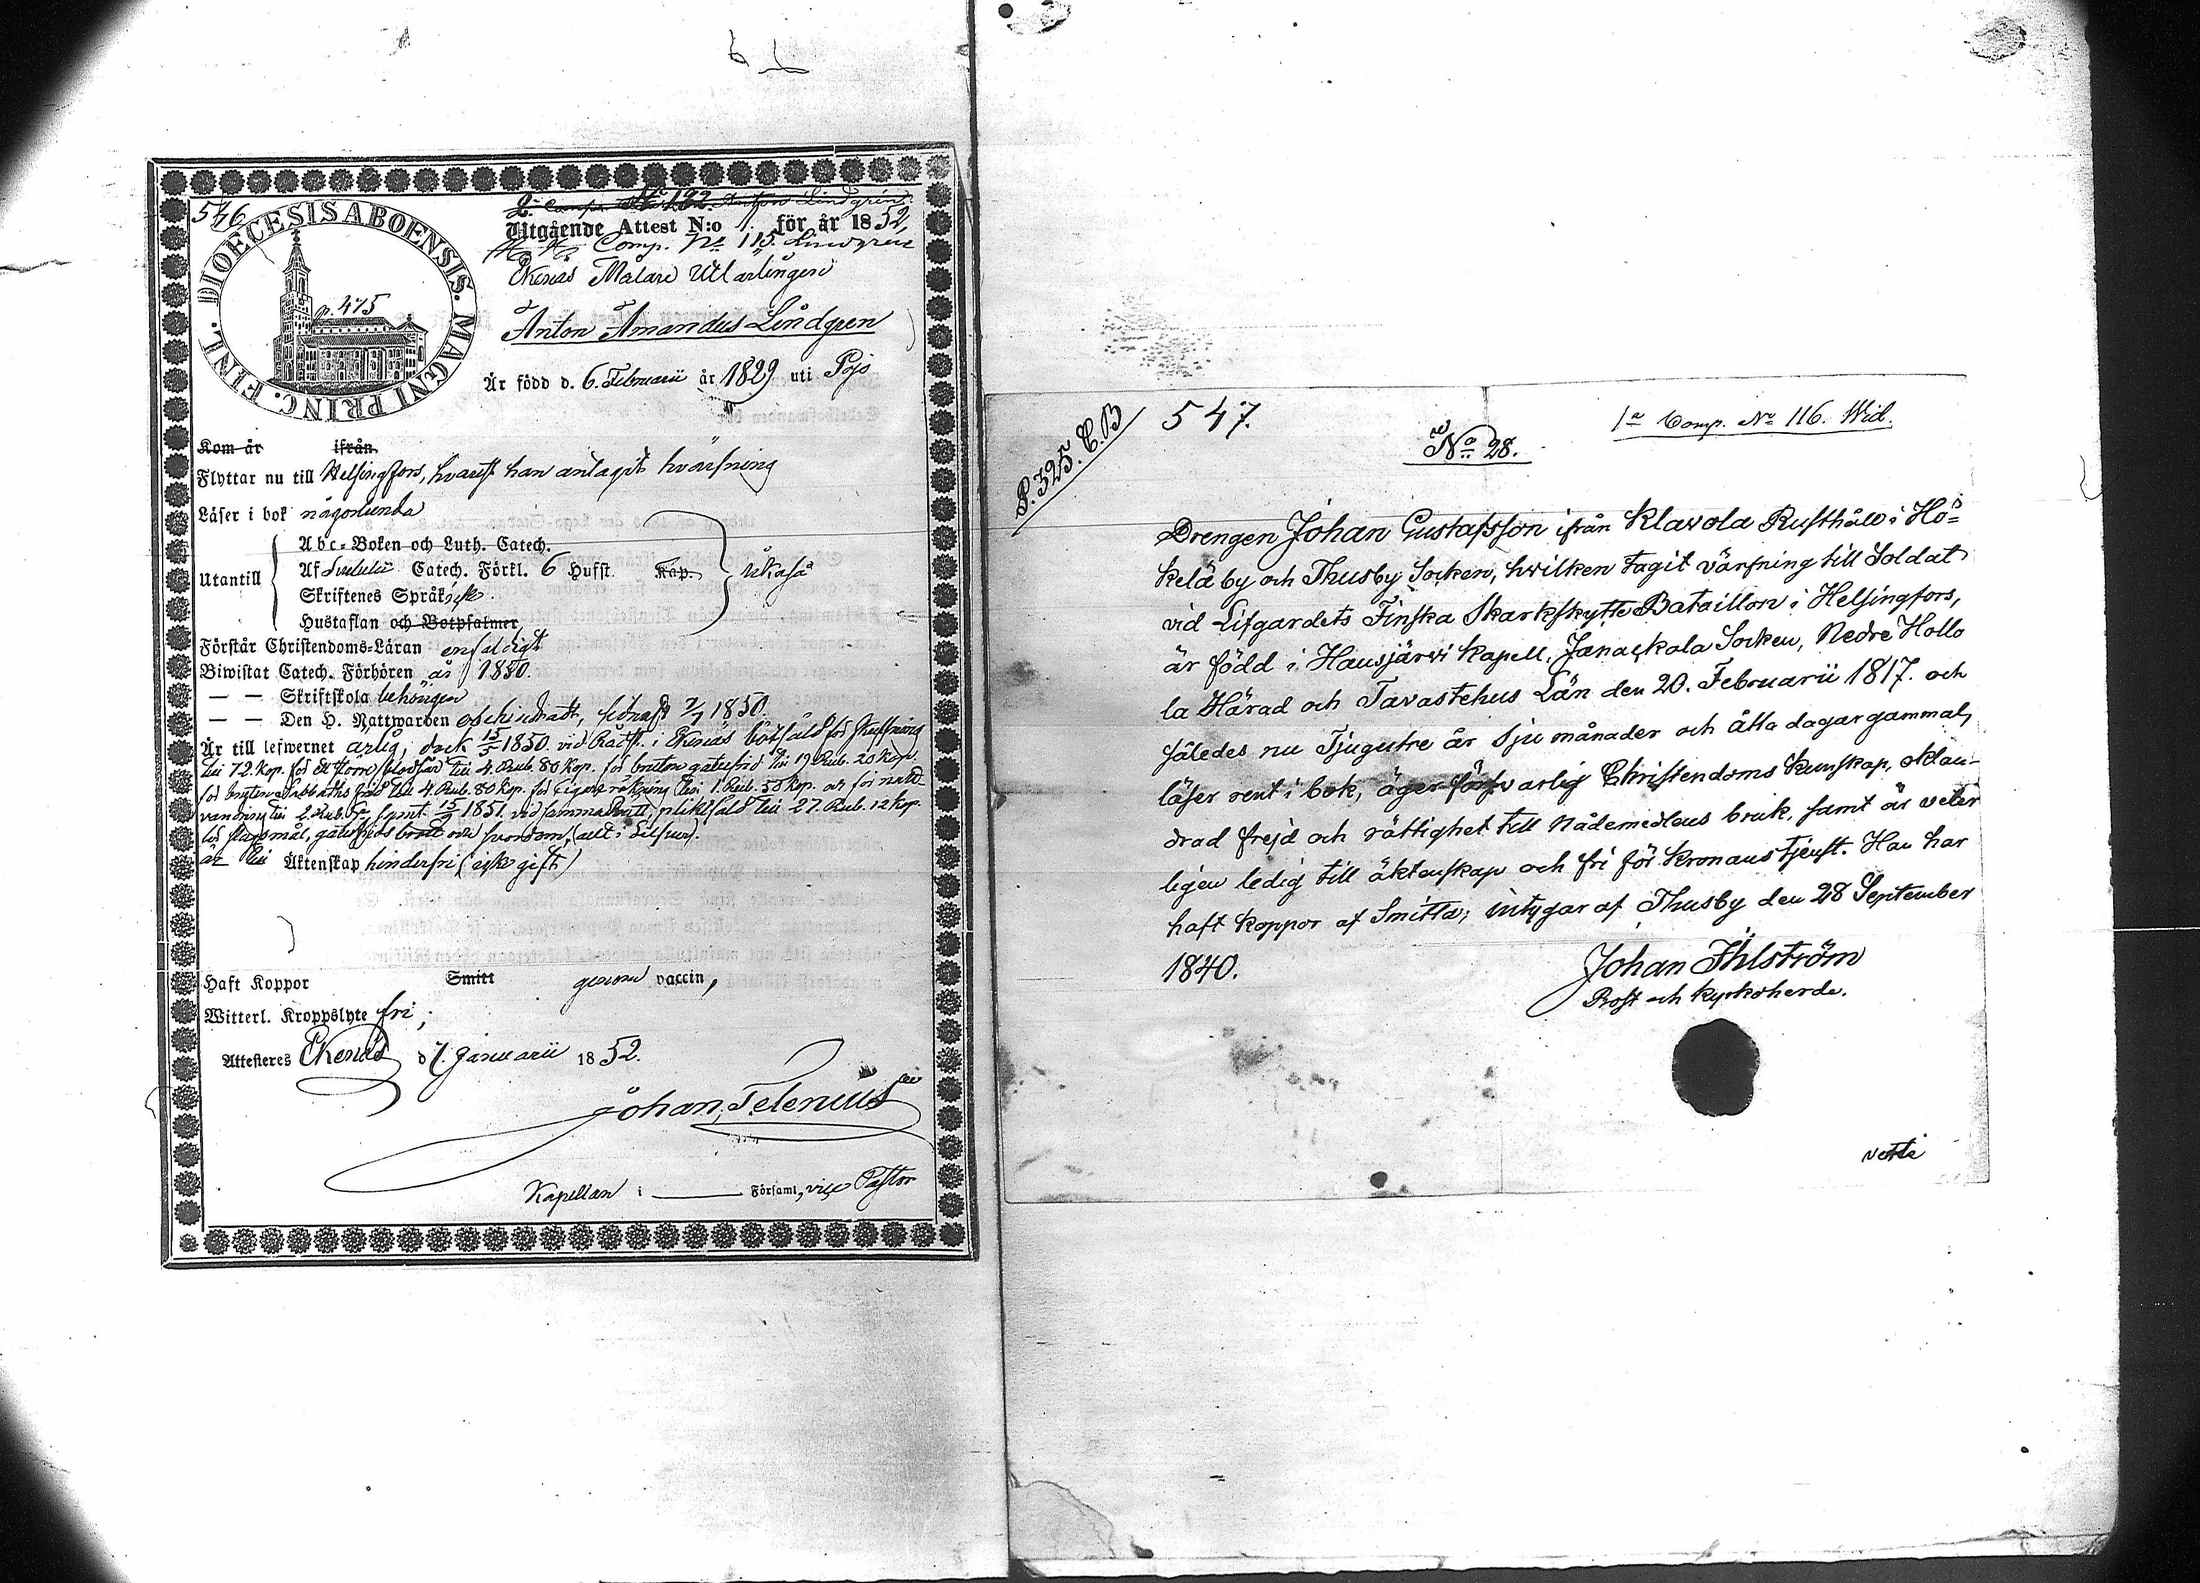 546
DIOECESIS ABOENSIS. MAGNI PRINC. FINL.
p. 475
2. Comp. No 192. Anton Lindgren
Utgående Attest N:o 1. för år 1852,
Comp. No 115. Lindgren
Ekenäs Målare Utlärlingen
Anton Amandus Lindgren
Är född d. 6. Februarii år 1829 uti Pojo
Kom år ifrån
Flyttar nu till Helsingfors, hvarest han antagit hvärfning
Läser i bok någorlunda
Utantill
Abc-Boken och Luth. Catech.
Af Catech. Förkl. 6 Hufst. Kap. också
Skriftenes Språk
Hustaflan och Botpsalmer
Förstår Christendoms-Läran enfaldigt
Biwistat Catech. Förhören år 1850.
— — Skriftskola behörigen
— — Den H. Nattwarden oskindradt, senast 7/7 1850.
Är till lefwernet ärlig, dock 15/5 1850. vid Rådst. i Ekenäs botfäld för
till 72. Kop. för till 4. Rub. 80 Kop. för bruten till 19 Rub. 20 Kop.
för bruten Sabbaths frid till 4. Rub. 80 Kop. för till 1. Rub. 58 Kop. och för natt-
vandring till 2. Rub. samt 15/2 1851. vid samma Rätt, pliktfäld till 27. Rub. 12 Kop.
för slagsmål, brott och svordom, (allt i
är till Äktenskap hinderfri (ogift)
Haft Koppor Smitt genom vaccin,
Witterl. Kroppslyte fri;
Attesteres Ekenäs d 7. Januarii 1852.
Johan Telenius
Kapellan i ——— Församl, vice Pastor
P. 325. C. B
547.
No 28.
1a Comp. No 116. Wid.
Drengen Johan Gustafsson ifrån Klavola Rusthåld i Hö-
kelä by och Thusby Socken, hwilken tagit värfning till Soldat
vid Lifgardets Finska Skarpskytte Bataillon i Helsingfors,
är född i Hausjärvi Kapell, Janackala Socken, Nedre Hollo
la Härad och Tavastehus Län den 20. Februarii 1817. och
således nu Tjugutre år Sju månader och åtta dagar gammal,
läser rent i bok, äger försvarlig Christendoms Kunskap, oklan-
drad frejd och rättighet till Nådemedlens bruk, samt är veter
ligen ledig till äktenskap och fri för Kronans tjenst. Han har
haft Koppor af Smitta; intygar af Thusby den 28 September
1840.
Johan Ahlström
Prost och Kyrkoherde.